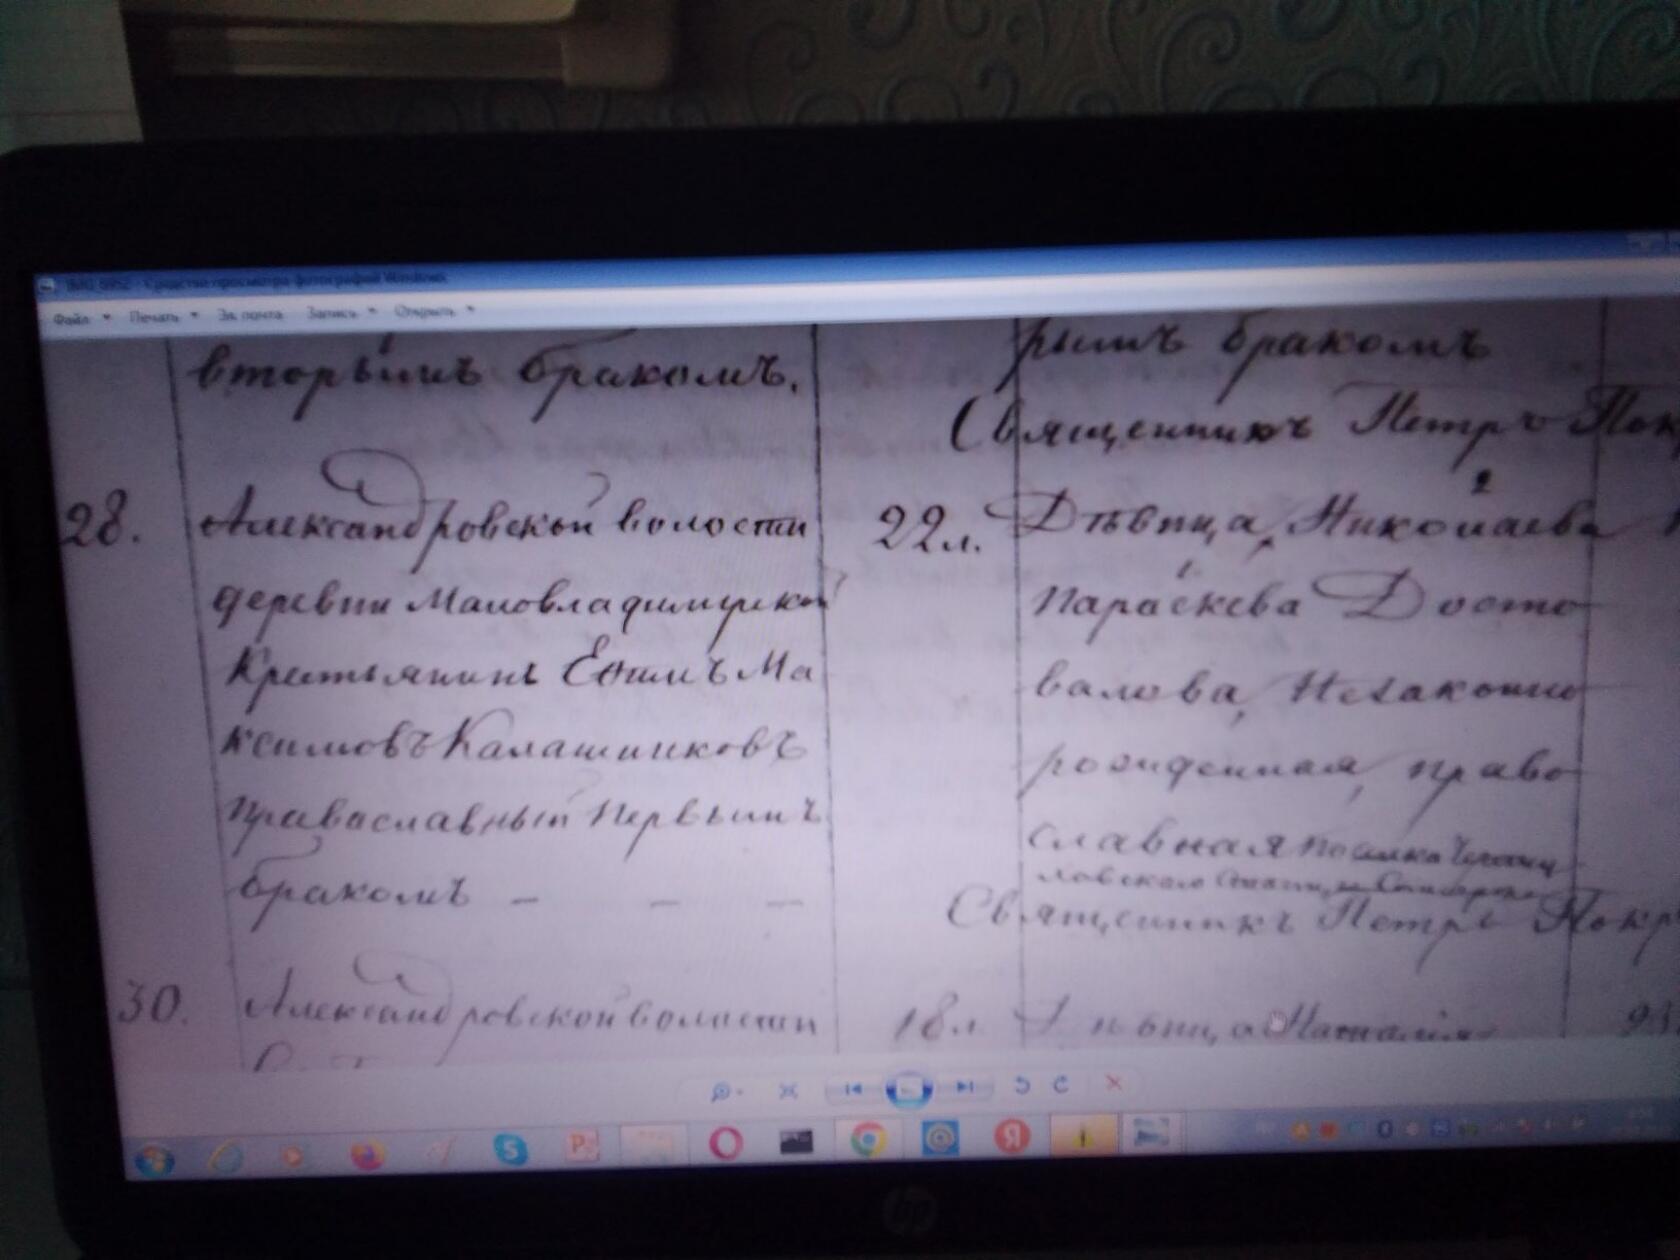 IMG_0952 - Средство просмотра фотографий Windows
Файл Печать Эл. почта Запись Открыть
вторымъ бракомъ.
рымъ бракомъ
Священникъ Петръ Пок
28.
Александровской волости
деревни Маловладимирской
Крестьянинъ Ефимъ Ма
ксимовъ Калашниковъ
Православный Первымъ
бракомъ – – –
22 л.
2
Дѣвица, Николаева
1
Параскева Досто
валова, Незаконно
рожденная, право
славная
Священникъ Петръ Покр
30.
Александровской волости
18 л.
Дѣвица Наталія
hp